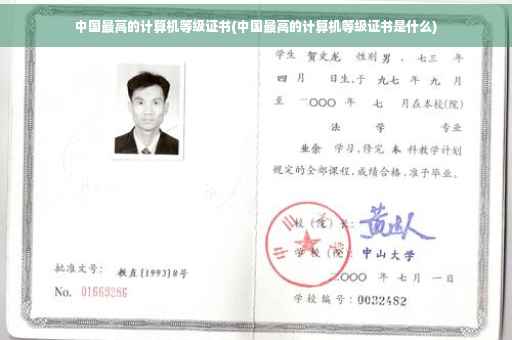 中国最高的计算机等级证书(中国最高的计算机等级证书是什么)
学生 贺文龙 性别 男 、七三 年
四 月 日生,于 九七 年 九 月
至 二〇〇〇 年 七 月在本校(院)
法 学 专业
业余 学习,修完 本 科教学计划
规定的全部课程,成绩合格,准予毕业。
校(院)长:
学校(院): 中山大学
二〇〇〇 年 七 月 一 日
学校编号: 0032482
批准文号: 教直[1993]8号
No. 01669286